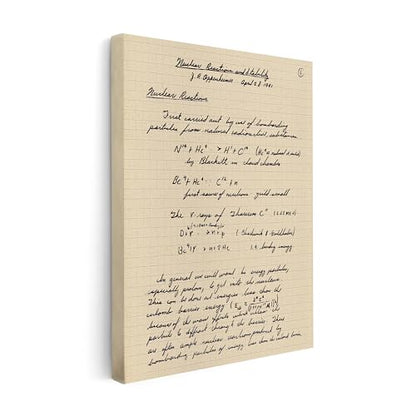 Nuclear Reactions and Stability
J. R. Oppenheimer April 28 1941
1
Nuclear Reactions
First carried out by use of bombarding
particles from natural radioactive substances
N¹⁴ + He⁴ → H¹ + O¹⁷ (He⁴ natural
by Blackett in cloud chamber
Be⁹ + He⁴ → C¹² + n
first source of neutrons yield small
The γ rays of Thorium C"
D + γ → n + p (Chadwick & Goldhaber)
Be⁹ + γ → n + 2He binding energy
In general we will want low energy particles,
especially protons, to get into the nucleus.
This can be done at energies less than the
coulomb barrier energy
because of the wave effects which allow the
particle to diffract through the barrier. These
are often simple nuclear reactions produced by
bombarding particles of energy less than the coulomb barrier